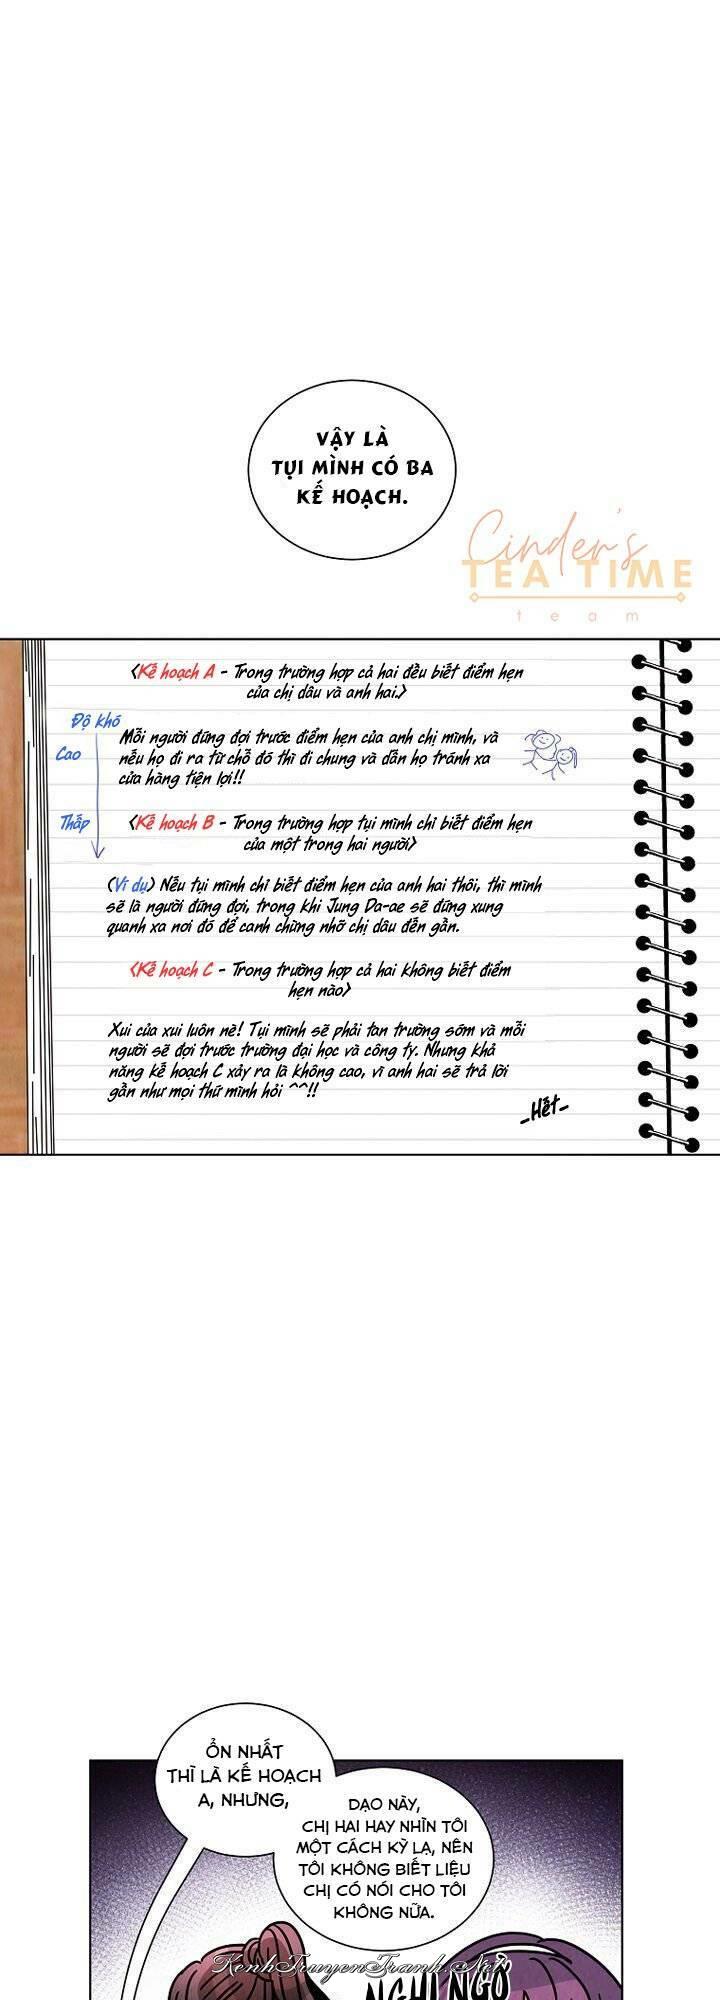 VẬY LÀ
TỤI MÌNH CÓ BA
KẾ HOẠCH.
Cinder's
TEA TIME
team
<Kế hoạch A - Trong trường hợp cả hai đều biết điểm hẹn
của chị dâu và anh hai.>
Độ khó
Cao
Mỗi người đứng đợi trước điểm hẹn của anh chị mình, và
nếu họ đi ra từ chỗ đó thì đi chung và dẫn họ tránh xa
cửa hàng tiện lợi!!
Thấp
<Kế hoạch B - Trong trường hợp tụi mình chỉ biết điểm hẹn
của một trong hai người>
(Ví dụ) Nếu tụi mình chỉ biết điểm hẹn của anh hai thôi, thì mình
sẽ là người đứng đợi, trong khi Jung Da-ae sẽ đứng xung
quanh xa nơi đó để canh chừng nhỡ chị dâu đến gần.
<Kế hoạch C - Trong trường hợp cả hai không biết điểm
hẹn nào>
Xui của xui luôn nè! Tụi mình sẽ phải tan trường sớm và mỗi
người sẽ đợi trước trường đại học và công ty. Nhưng khả
năng kế hoạch C xảy ra là không cao, vì anh hai sẽ trả lời
gần như mọi thứ mình hỏi ^^!!
_Hết_
ỔN NHẤT
THÌ LÀ KẾ HOẠCH
A, NHƯNG,
DẠO NÀY,
CHỊ HAI HAY NHÌN TÔI
MỘT CÁCH KỲ LẠ, NÊN
TÔI KHÔNG BIẾT LIỆU
CHỊ CÓ NÓI CHO TÔI
KHÔNG NỮA.
KenhTruyenTranh.Net
NGHI NGỜ